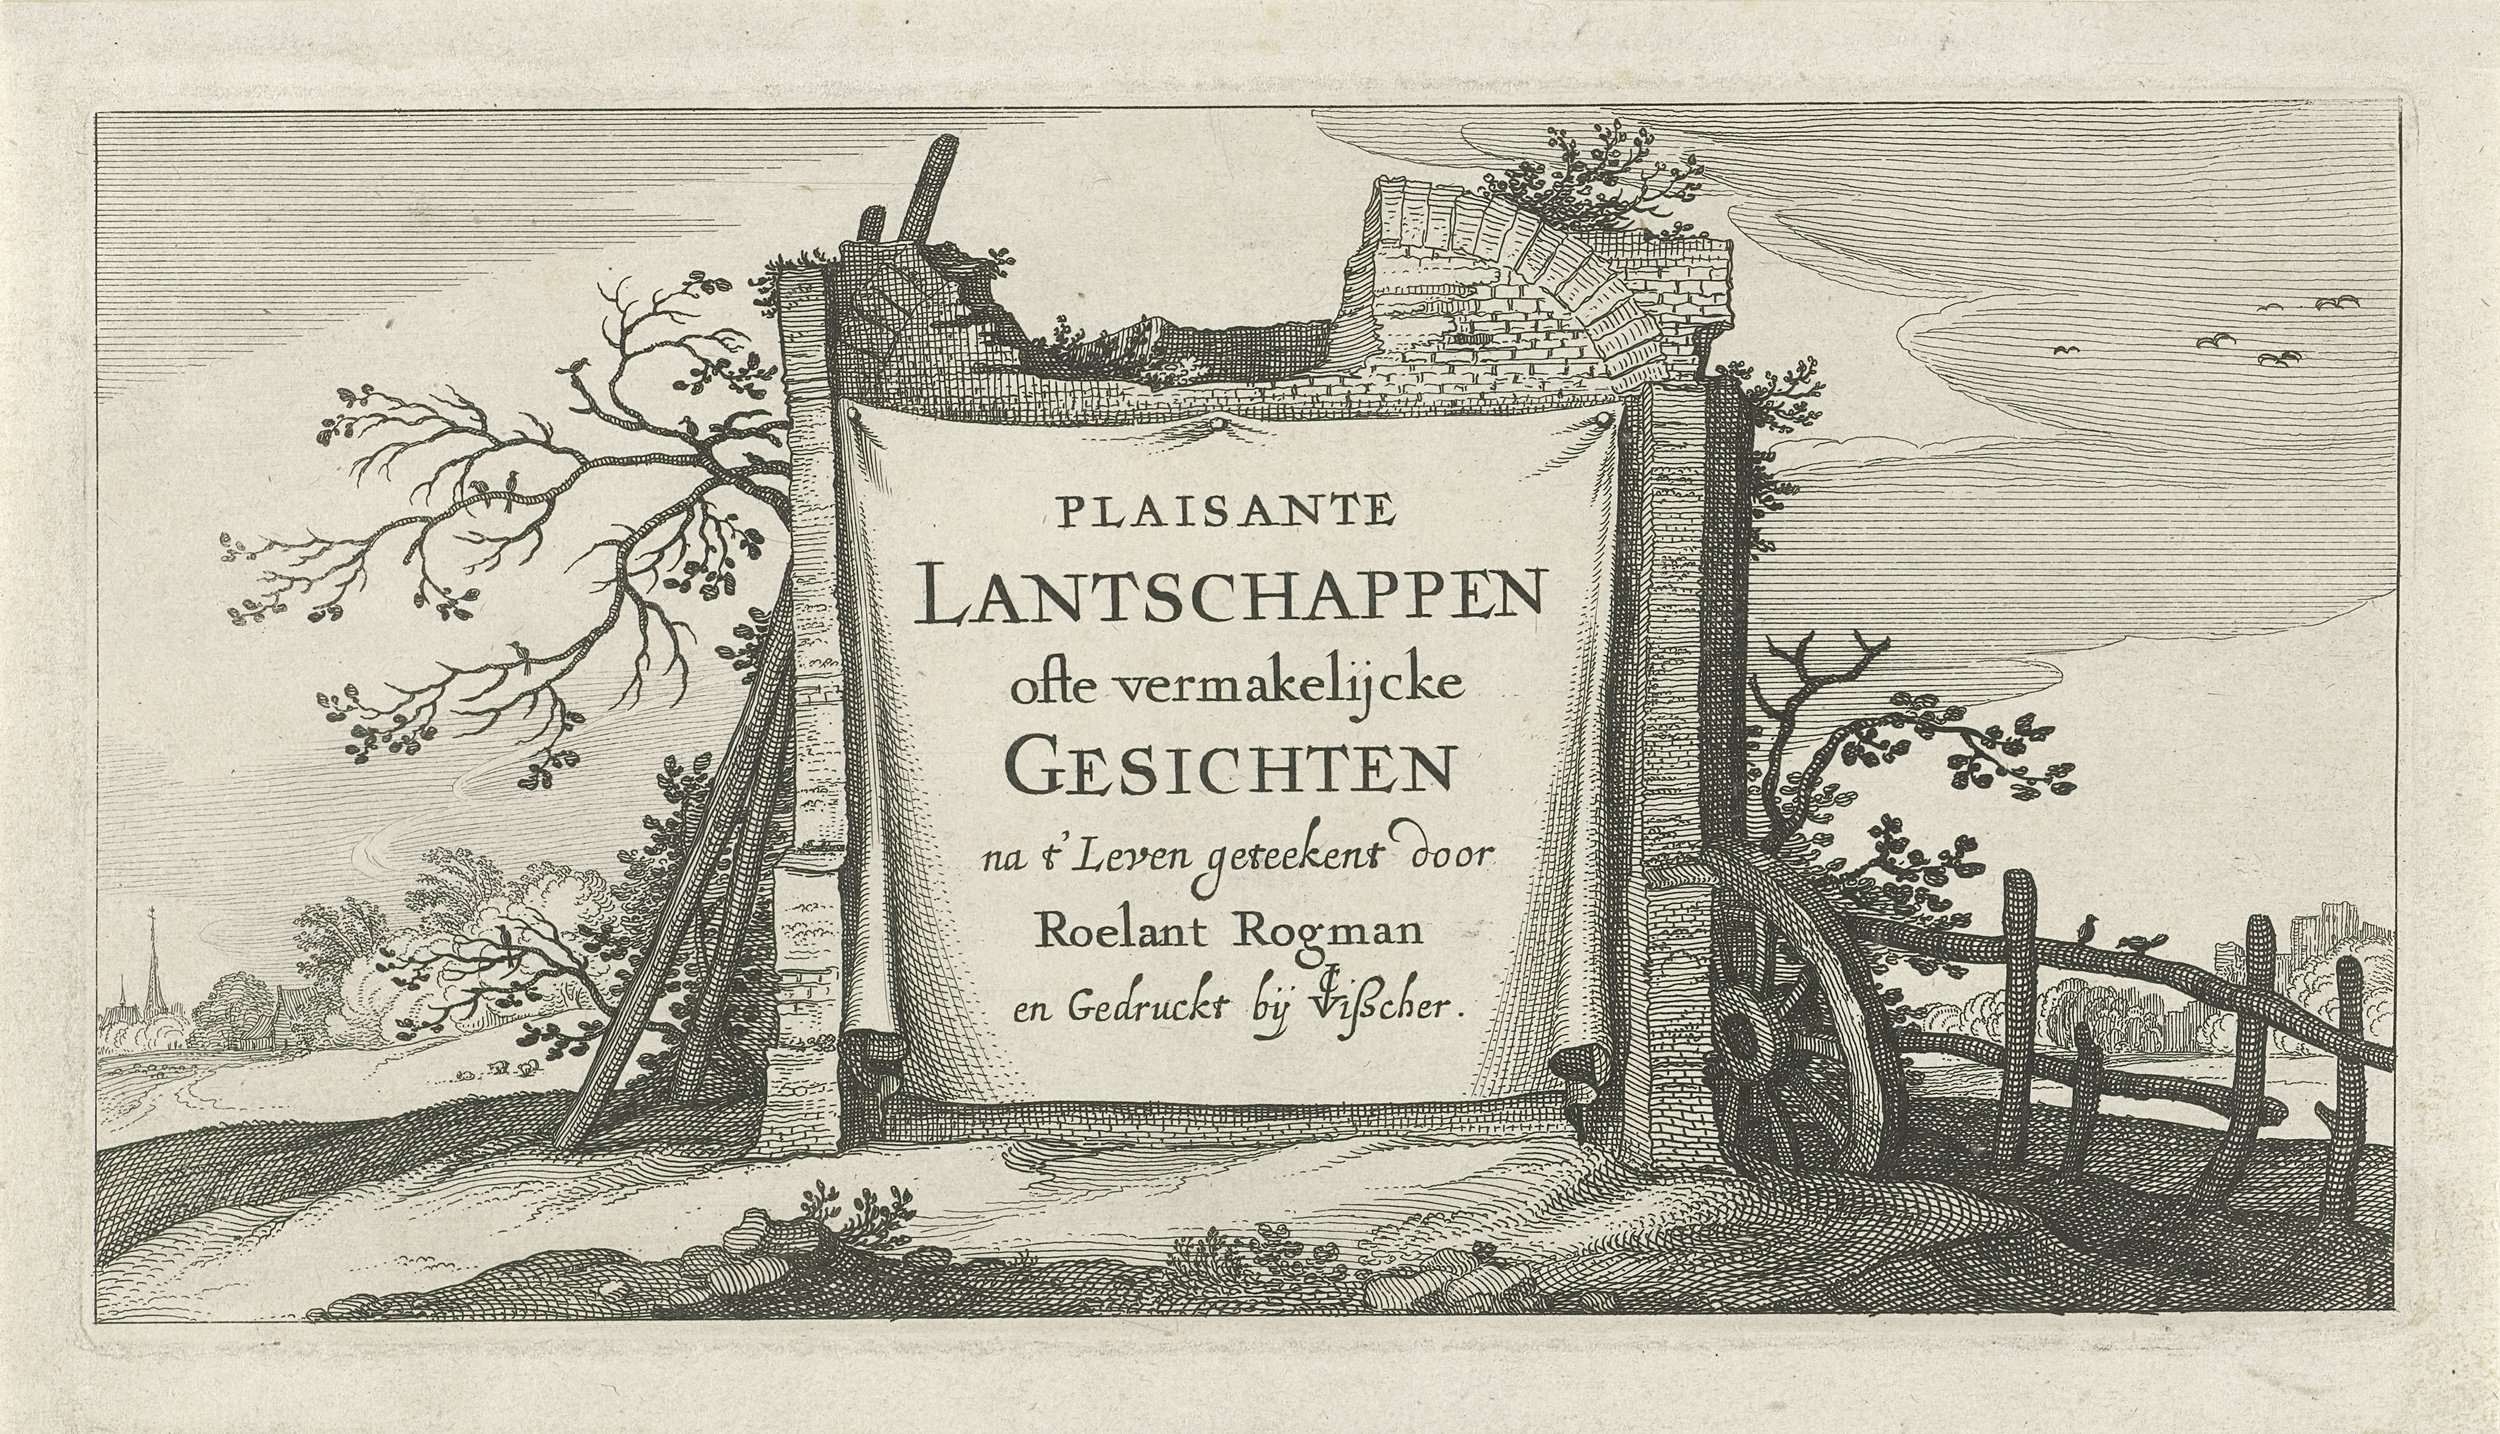 PLAISANTE
LANTSCHAPPEN
ofte vermakelijcke
GESICHTEN
na t' Leven geteekent door
Roelant Rogman
en Gedruckt bij CIVißcher.